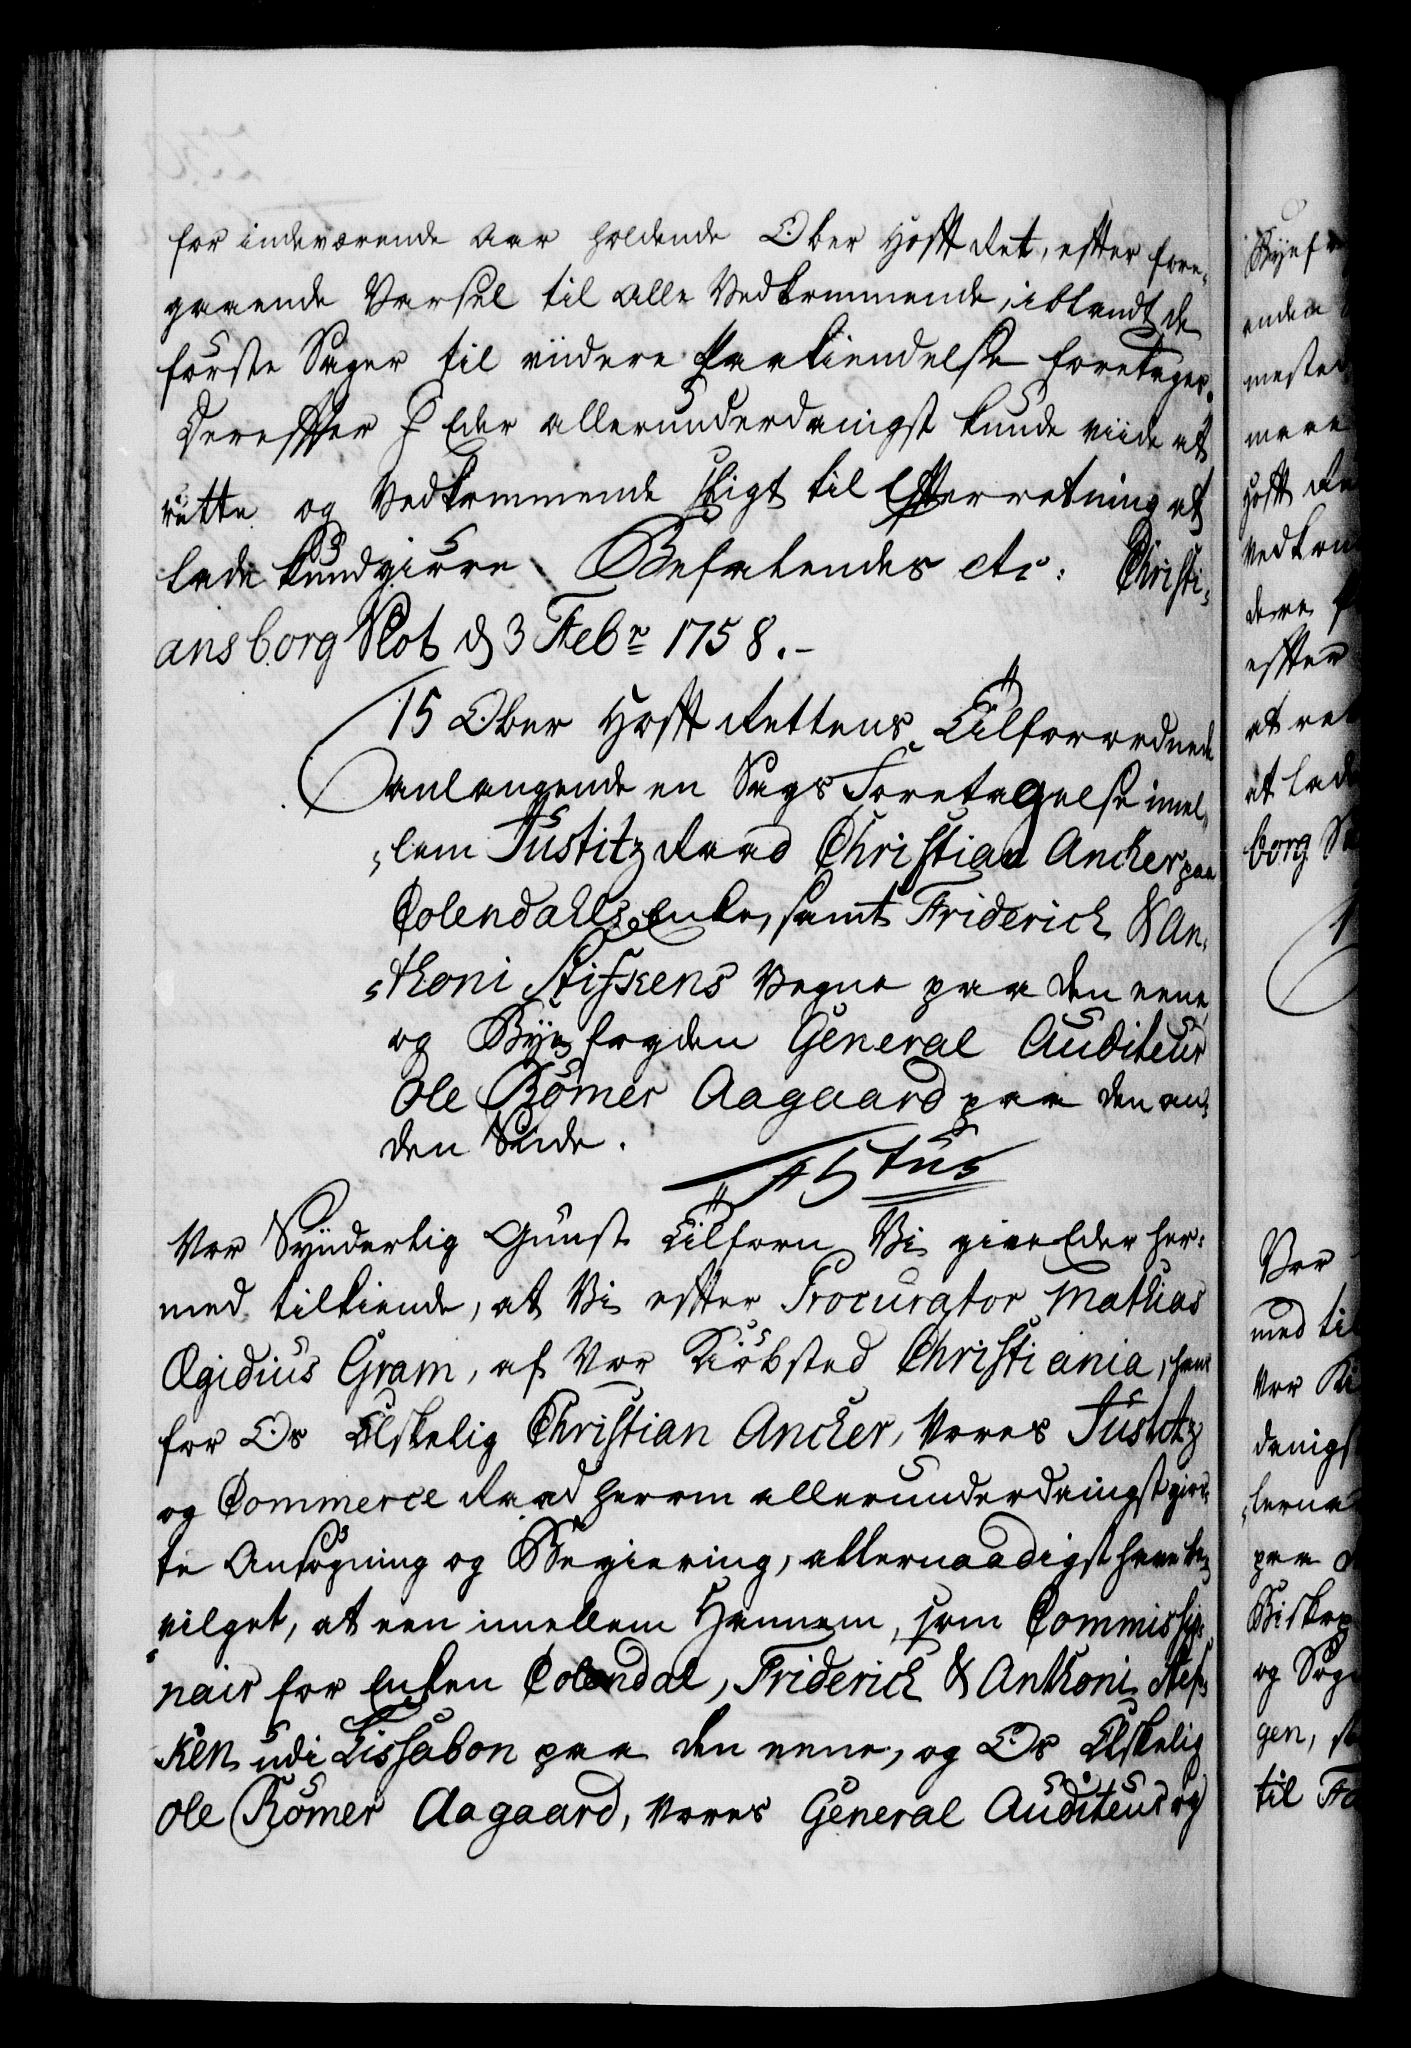 for indeværende Aar holdende Ober Hoff Ret, efter fore-
gaaende Varsel til alle Vedkommende, iblandt de
förste Sager til viidere Paakiendelse foretages.
Derefter I Eder allerunderdanigst kunde viide at
rette og Vedkommende sligt til Efterretning at
lade kundgiöre. Befalendes etc: Christi-
ansborg Slot d 3 Febr 1758.-
15 Ober Hoff Rettens Tilforordnede
anlangende en Sags Foretagelse imel-
lem Justitz Raad Christian Ancher paa
Colendahls Enke, samt Friderich & An-
thoni Stifkens Vegne paa den eene,
og Byefogden General Auditeur
Ole Römer Aagaard paa den an-
den Siide.
F 5tus
Vor Synderlig Gunst Tilforn. Vi give Eder her-
med tilkiende, at Vi efter Procurator Mathias
Ægidius Gram, af Vor Kiöbsted Christiania, hans
for Os Elskelig Christian Ancher, Vores Justitz
og Commerce Raad herom allerunderdanigst gior-
te Ansögning og Begiering, allernaadigst have be-
vilget, at een imellem Hannem, som Commissio-
nair for Enken Colendal, Friderich & Anthoni Stef-
ken udi Lissabon paa den eene, og Os Elskelig
Ole Römer Aagaard, Vores General Auditeur og